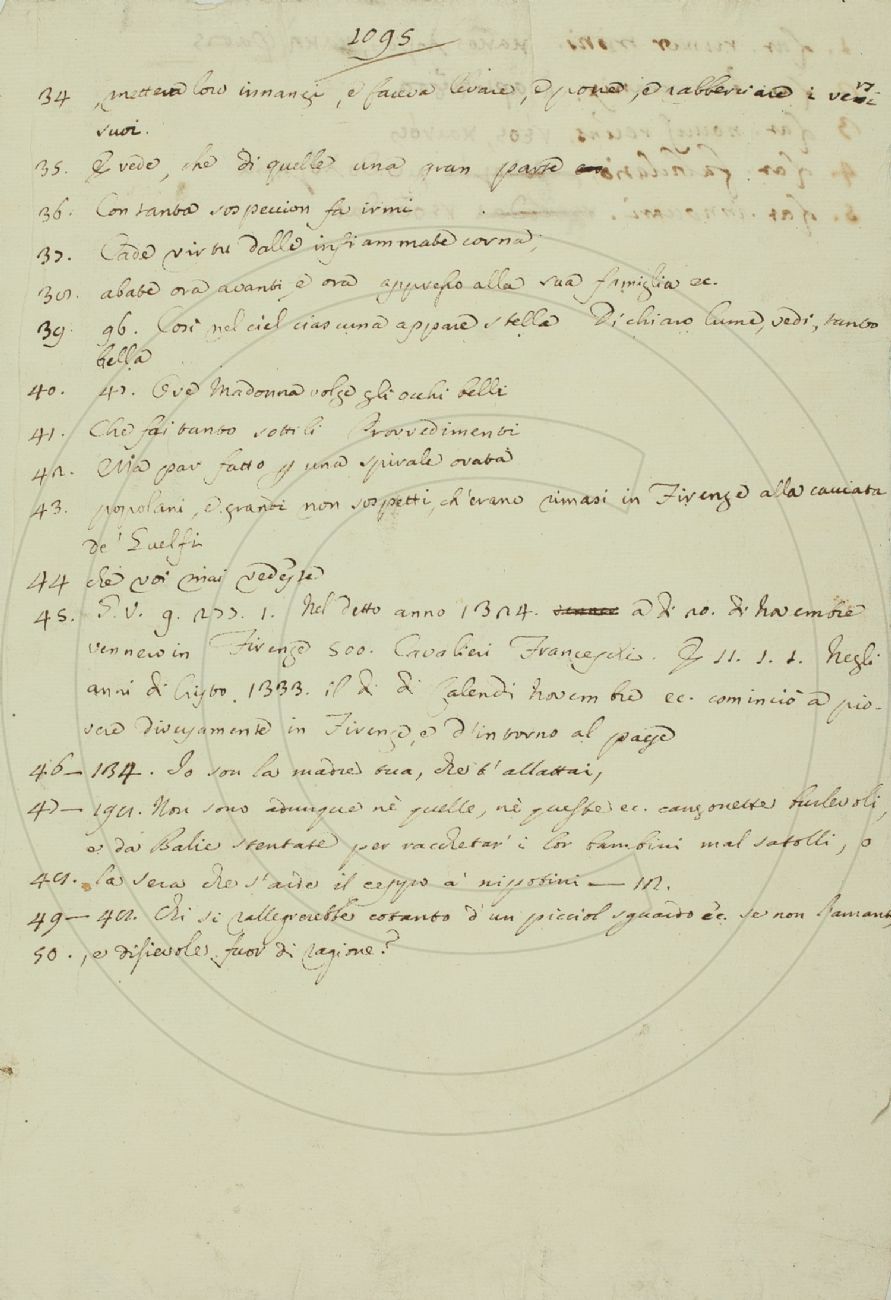 1095
34 , metteva loro innanzi, e faceva levare, e porre, e rabberciare i versi
suoi.
35. E vede, che di quelle una gran parte
36. Con tanta sospeccion fa irmi
37. Cade virtù dalle infiammate corna;
38. abate ora avanti e ora appresso alla sua famiglia ec.
39. 96. Così nel ciel ciascuna appare stella Di chiaro lume, vedi, tanto
bella
40. 47. Ove Madonna volge gli occhi belli
41. Che fai tanto sottili Provvedimenti
42. Ma par fatto p una spirale ovata
43. popolani, e grandi non sospetti, ch'erano rimasi in Firenze alla cacciata
de' Guelfi
44 che voi mai vedeste
45. G. V. 9. 277. 1. Nel detto anno 1324. a dì 20. di Novembre
vennero in Firenze 500. Cavalieri Franceschi. E 11. 1. 1. Negli
anni di Cristo 1333. il dì di Calendi Novembre ec. cominciò a pio-
vere diversamente in Firenze, e d'intorno al paese
46— 134. Io son la madre tua, che t'allattai,
47— 198. Non sono adunque nè quelle, nè queste ec. canzonette burlevoli,
e da Balie stentate per racchetar' i lor bambini mal satolli, o
48. la sera che s'arde il ceppo a' nipotini — 12.
49— 48. Chi si rallegrerebbe cotanto d'un picciol sguardo ec. se non l'amante
50. , e disievole fuor di ragione?